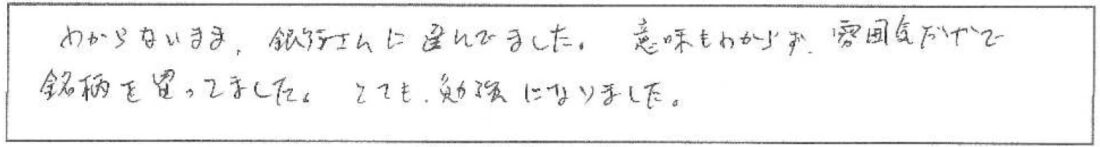 わからないまま、銀行さんに選んでました。意味もわからず、雰囲気だけで
銘柄を買ってました。とても、勉強になりました。